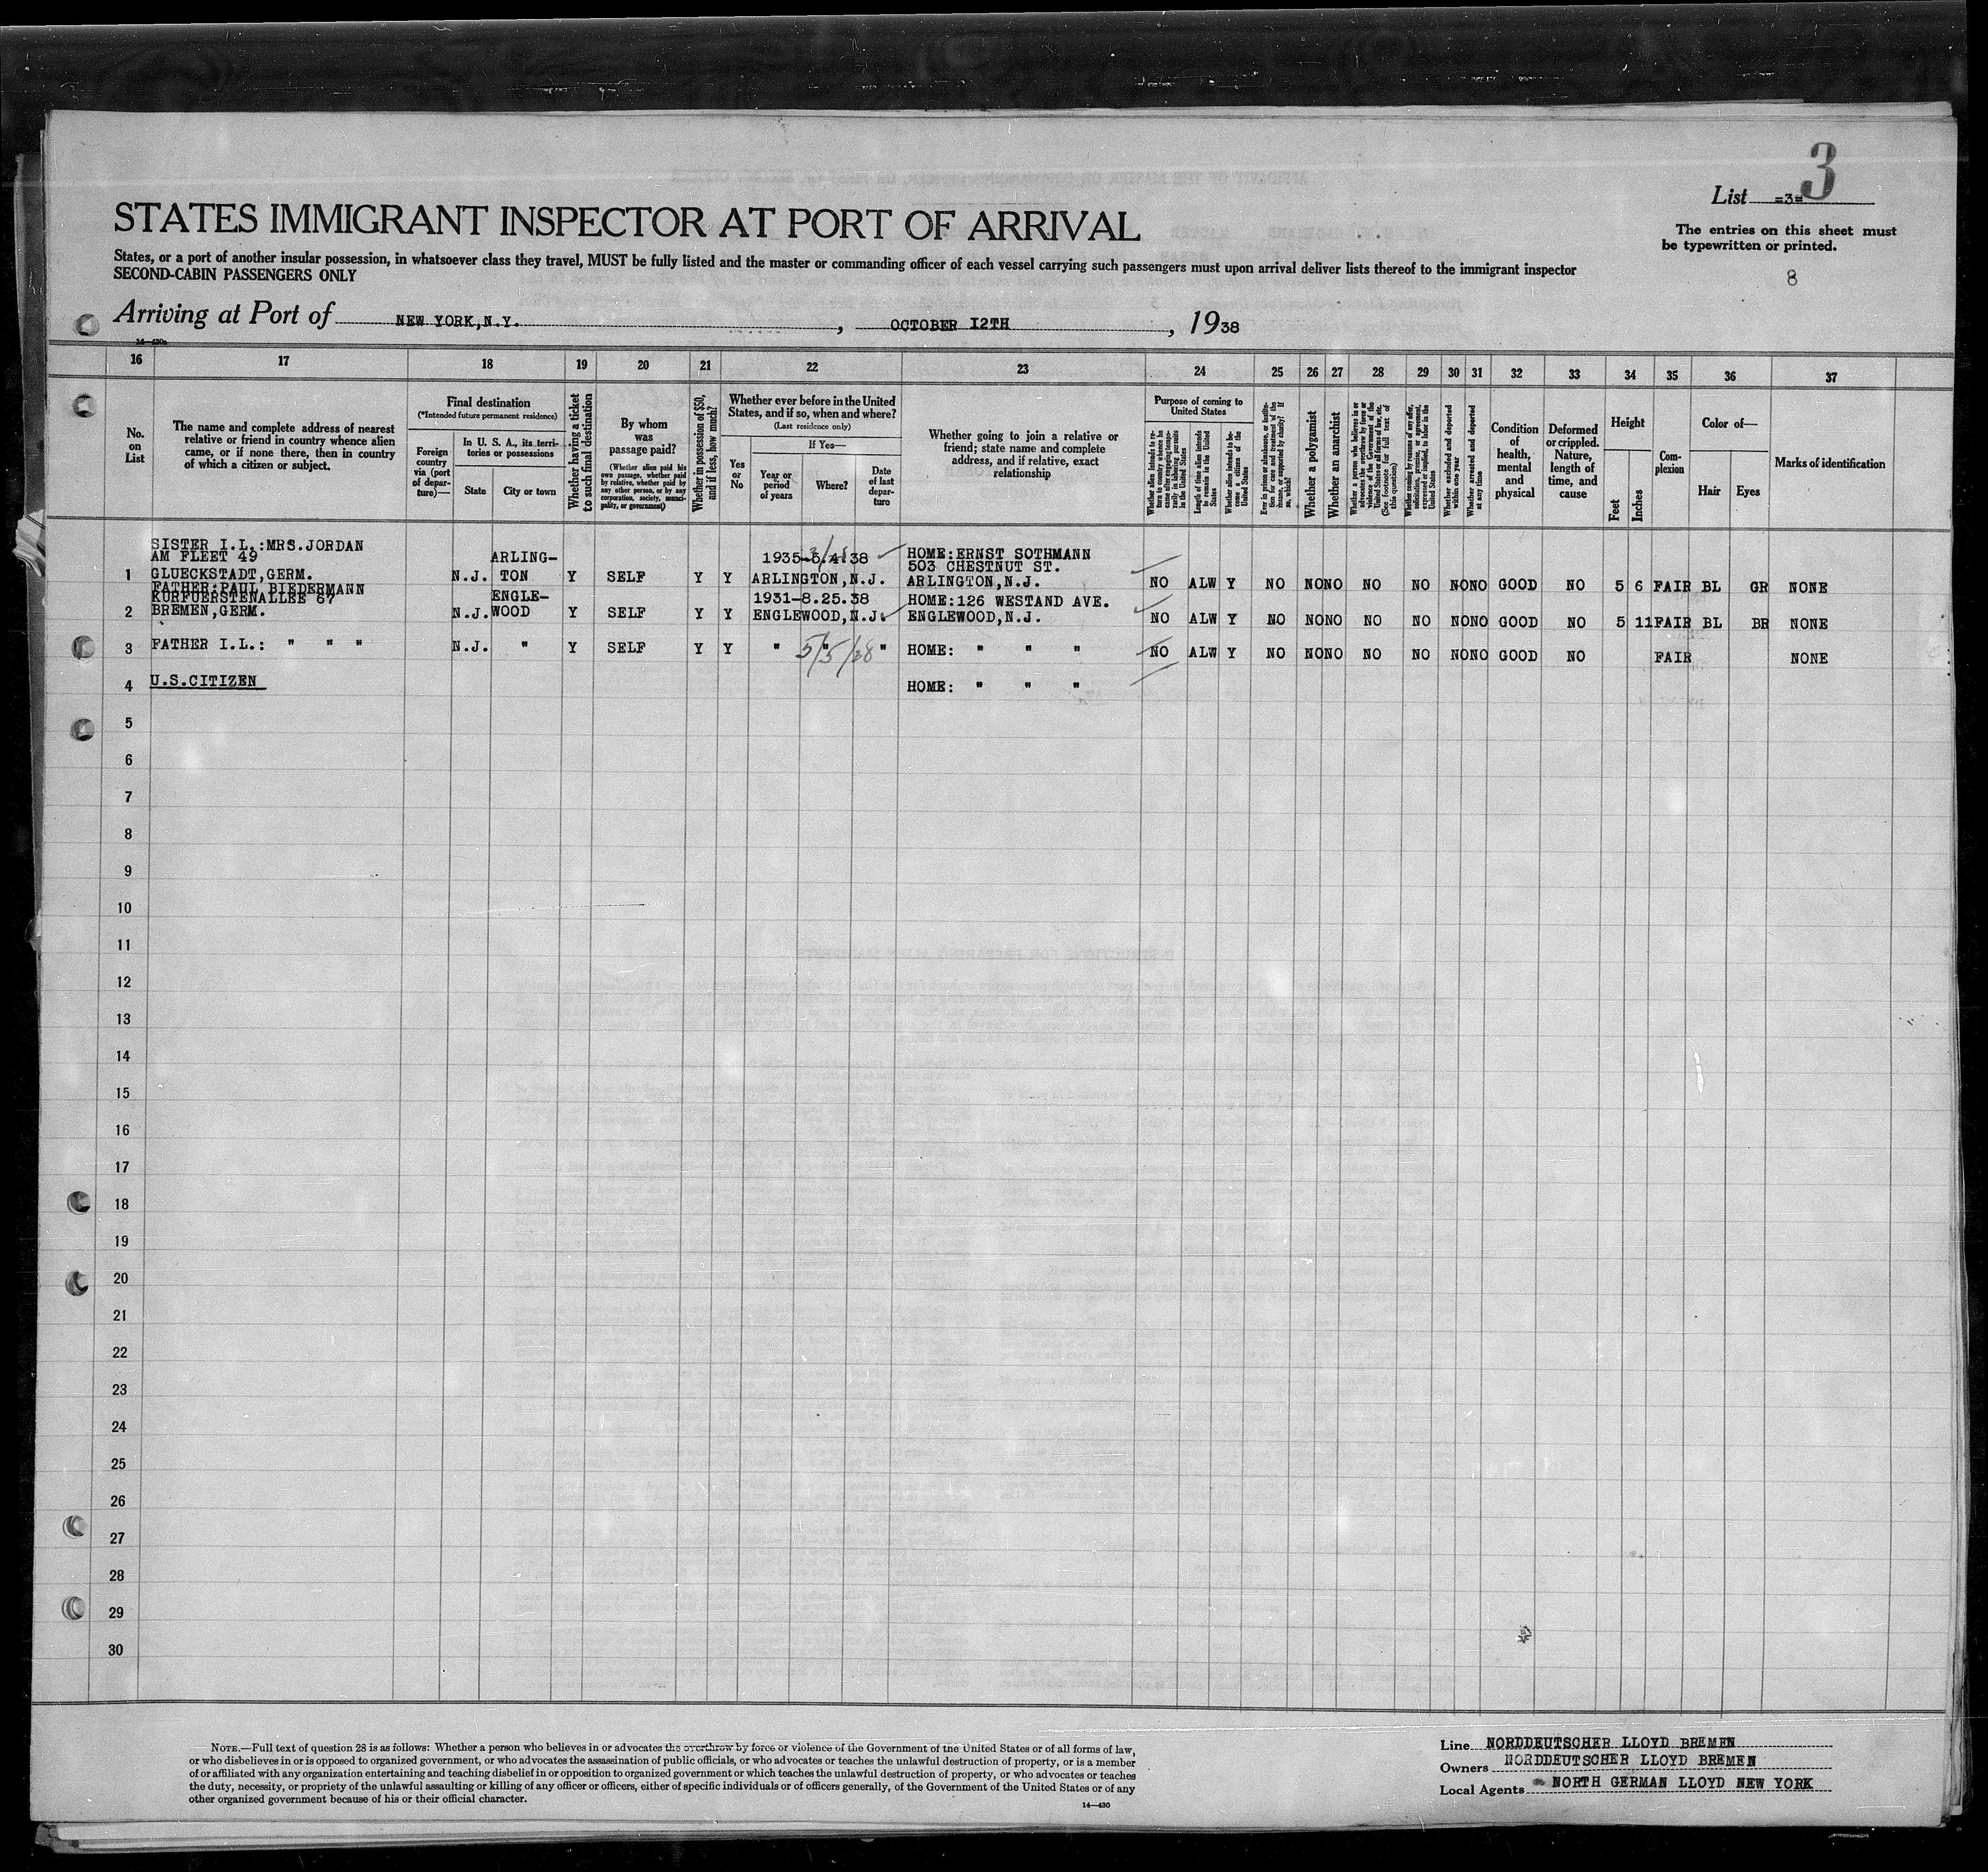 3
List =3=
STATES IMMIGRANT INSPECTOR AT PORT OF ARRIVAL
The entries on this sheet must
be typewritten or printed.
States, or a port of another insular possession, in whatsoever class they travel, MUST be fully listed and the master or commanding officer of each vessel carrying such passengers must upon arrival deliver lists thereof to the immigrant inspector
SECOND-CABIN PASSENGERS ONLY
8
Arriving at Port of NEW YORK, N.Y. , OCTOBER 12TH , 1938
14—430a
16 17 18 19 20 21 22 23 24 25 26 27 28 29 30 31 32 33 34 35 36 37
No. on List
The name and complete address of nearest relative or friend in country whence alien came, or if none there, then in country of which a citizen or subject.
Final destination
(*Intended future permanent residence)
Foreign country via (port of departure)—
In U. S. A., its territories or possessions
State
City or town
Whether having a ticket to such final destination
By whom was passage paid?
(Whether alien paid his own passage, whether paid by relative, whether paid by any other person, or by any corporation, society, municipality, or government)
Whether in possession of $50, and if less, how much?
Whether ever before in the United States, and if so, when and where?
(Last residence only)
Yes or No
If Yes—
Year or period of years
Where?
Date of last departure
Whether going to join a relative or friend; state name and complete address, and if relative, exact relationship
Purpose of coming to United States
Whether alien intends to return to country whence he came after engaging temporarily in laboring pursuits in the United States
Length of time alien intends to remain in the United States
Whether alien intends to become a citizen of the United States
Ever in prison or almshouse, or institution for care and treatment of the insane, or supported by charity? If so, which?
Whether a polygamist
Whether an anarchist
Whether a person who believes in or advocates the overthrow by force or violence of the Government of the United States or all forms of law, etc. (See footnote for full text of this question)
Whether coming by reasons of any offer, solicitation, promise, or agreement, expressed or implied, to labor in the United States
Whether excluded and deported within one year
Whether arrested and deported at any time
Condition of health, mental and physical
Deformed or crippled. Nature, length of time, and cause
Height
Feet
Inches
Complexion
Color of—
Hair
Eyes
Marks of identification
SISTER I.L.:MRS.JORDAN
AM FLEET 49 ARLING- 1935-5.4.38 HOME:ERNST SOTHMANN
503 CHESTNUT ST.
1 GLUECKSTADT,GERM. N.J. TON Y SELF Y Y ARLINGTON,N.J. ARLINGTON,N.J. NO ALW Y NO NO NO NO NO NO NO GOOD NO 5 6 FAIR BL GR NONE
FATHER:PAUL BIEDERMANN
KURFUERSTENALLEE 67 ENGLE- 1931-8.25.38 HOME:126 WESTAND AVE.
2 BREMEN,GERM. N.J. WOOD Y SELF Y Y ENGLEWOOD,N.J. ENGLEWOOD,N.J. NO ALW Y NO NO NO NO NO NO NO GOOD NO 5 11 FAIR BL BR NONE
3 FATHER I.L.: " " " N.J. " Y SELF Y Y " " " 5/5/38 HOME: " " " NO ALW Y NO NO NO NO NO NO NO GOOD NO FAIR NONE
4 U.S.CITIZEN HOME: " " "
5
6
7
8
9
10
11
12
13
14
15
16
17
18
19
20
21
22
23
24
25
26
27
28
29
30
NOTE.—Full text of question 28 is as follows: Whether a person who believes in or advocates the overthrow by force or violence of the Government of the United States or of all forms of law,
or who disbelieves in or is opposed to organized government, or who advocates the assassination of public officials, or who advocates or teaches the unlawful destruction of property, or is a member
of or affiliated with any organization entertaining and teaching disbelief in or opposition to organized government or which teaches the unlawful destruction of property, or who advocates or teaches
the duty, necessity, or propriety of the unlawful assaulting or killing of any officer or officers, either of specific individuals or of officers generally, of the Government of the United States or of any
other organized government because of his or their official character.
14—430
Line NORDDEUTSCHER LLOYD BREMEN
Owners NORDDEUTSCHER LLOYD BREMEN
Local Agents NORTH GERMAN LLOYD NEW YORK